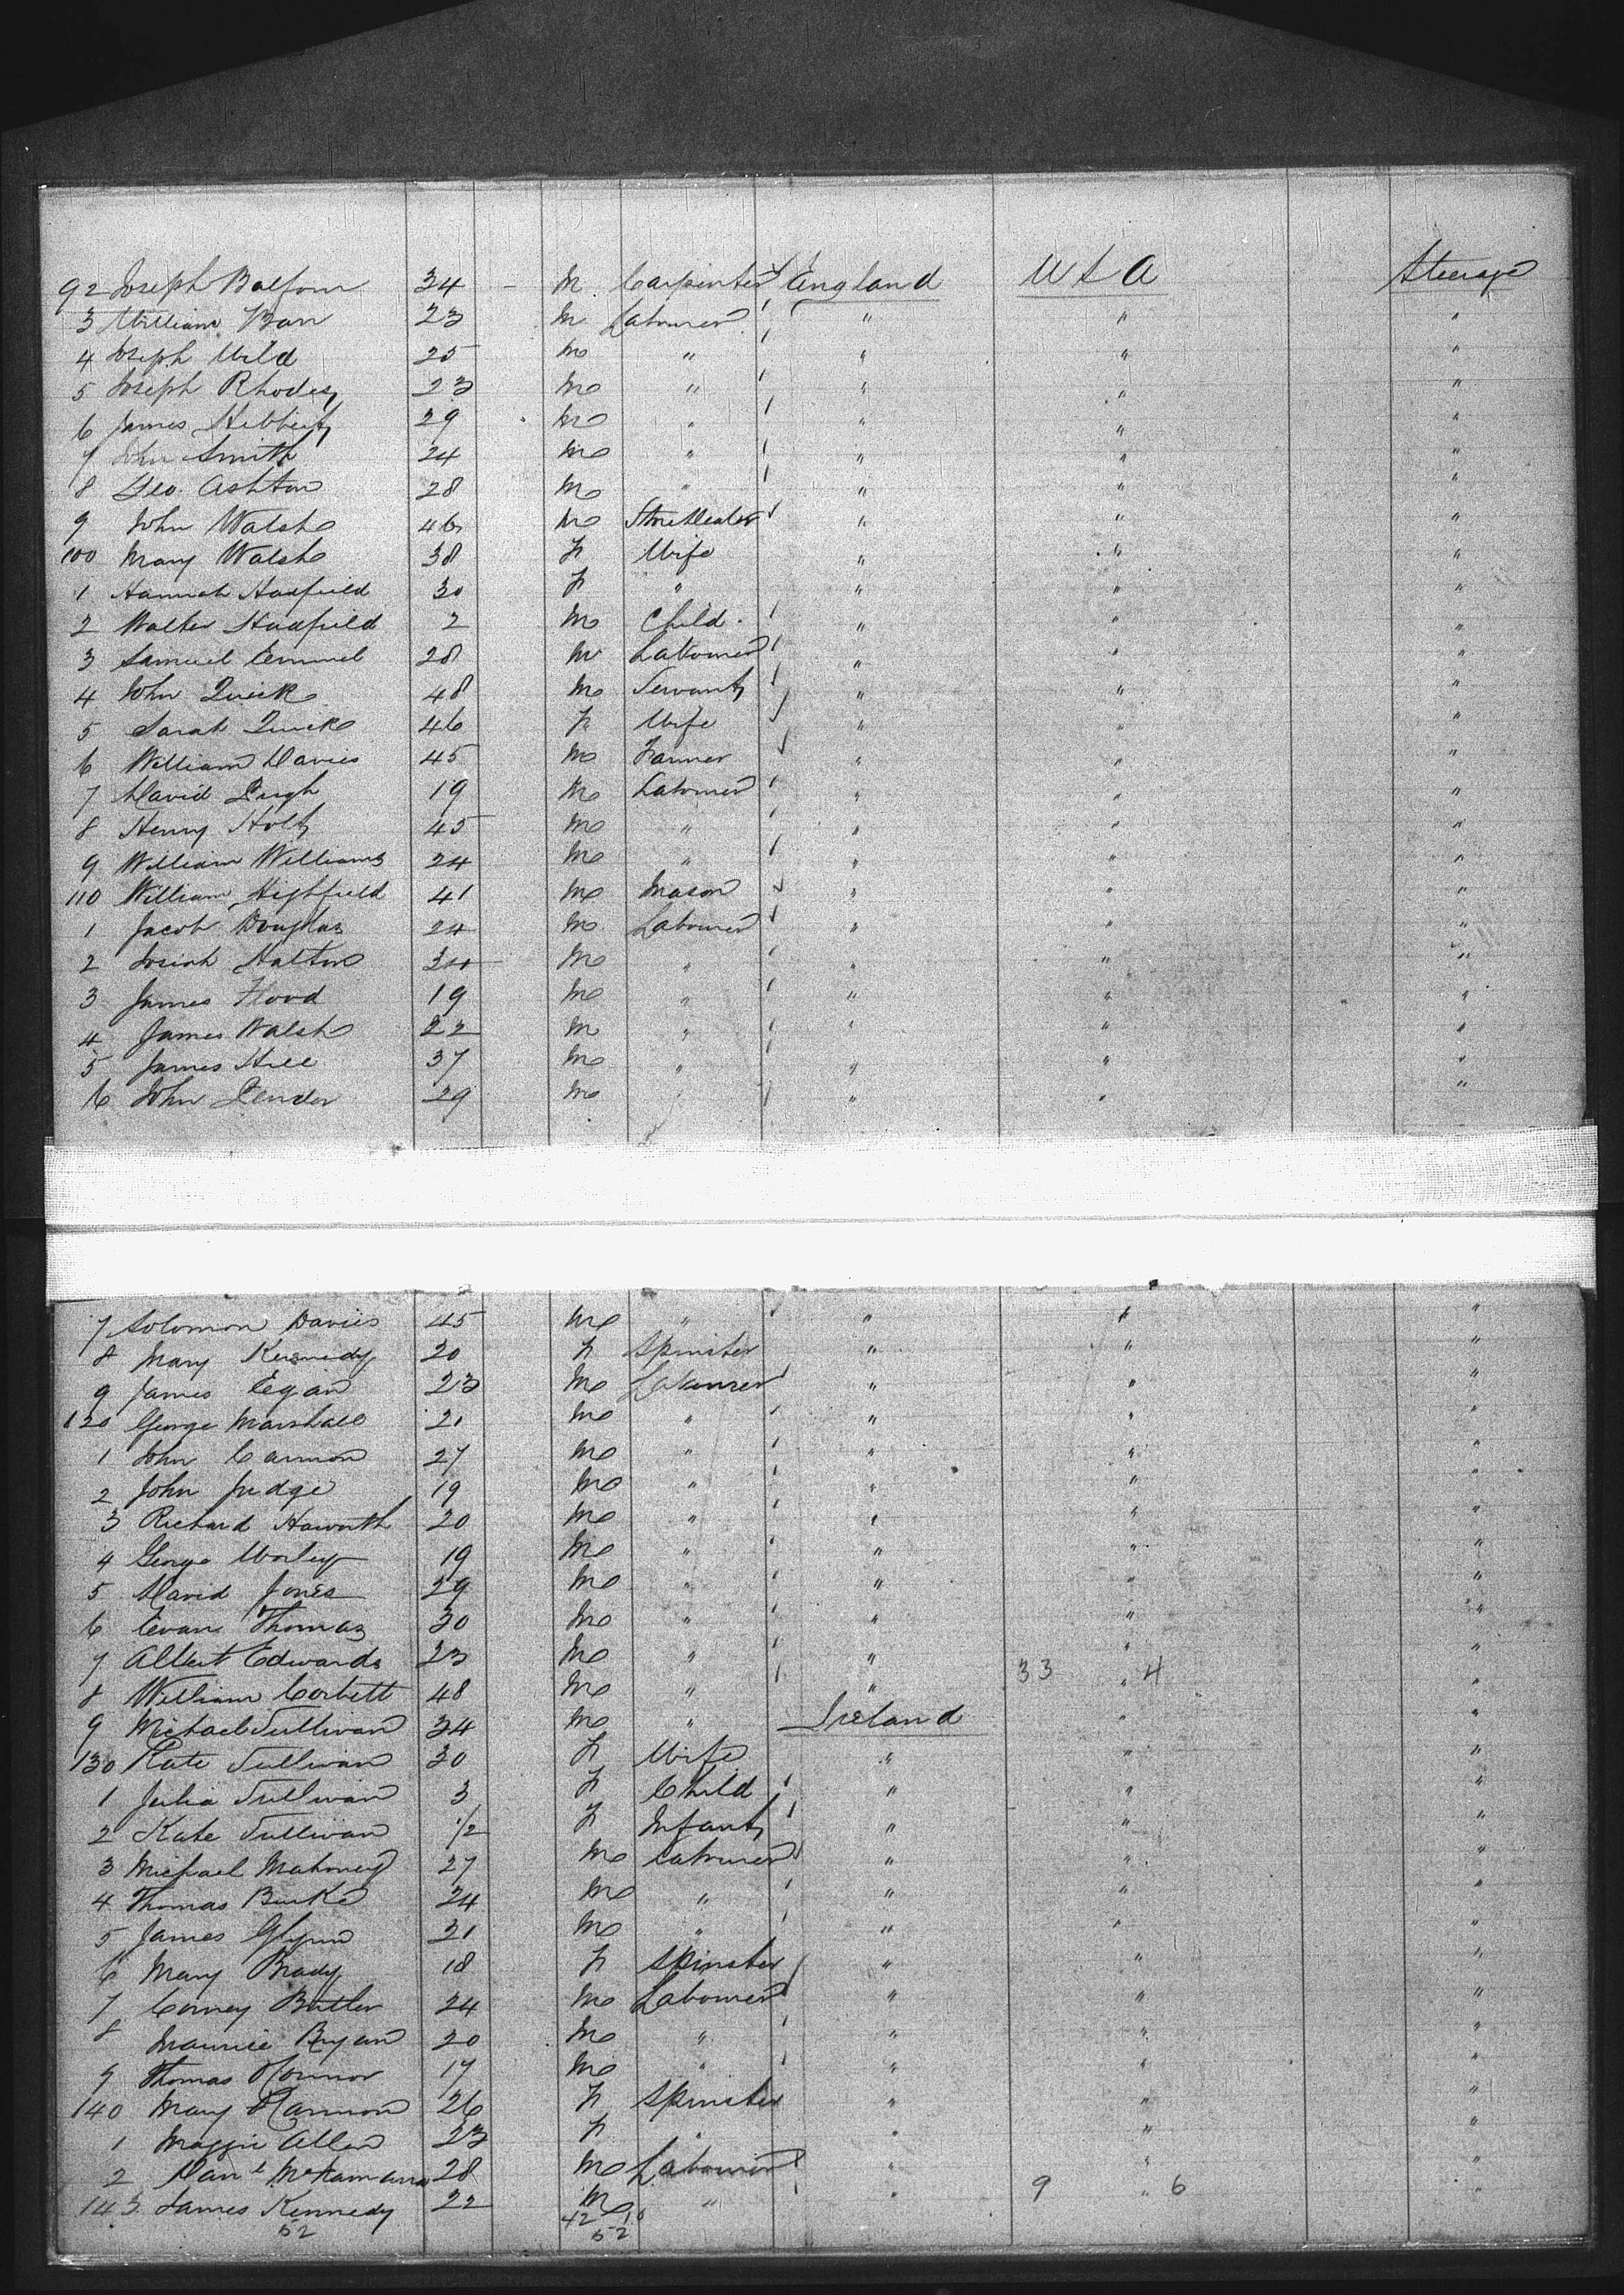 92 Joseph Balfour 34 - M. Carpenter England U S A Steerage
3 William Barr 23 M Labourer " " "
4 Joseph Wild 25 M " " " "
5 Joseph Rhodes 23 M " " " "
6 James Hibbert 29 M " " " "
7 John Smith 24 M " " " "
8 Geo. Ashton 28 M " " " "
9 John Walsh 46 M " " "
100 Mary Walsh 38 F Wife " " "
1 Hannah Hadfield 30 F " " " "
2 Walter Hadfield 2 M Child. " " "
3 Samuel 28 M Labourer " " "
4 John Quick 48 M Servant " " "
5 Sarah Quick 46 F Wife " " "
6 William Davies 45 M Farmer " " "
7 David Pugh 19 M Labourer " " "
8 Henry Holt 45 M " " " "
9 William Williams 24 M " " " "
110 William Highfield 41 M Mason " " "
1 Jacob Douglas 24 M Labourer " " "
2 Josiah Hatton M " " " "
3 James Flood 19 M " " " "
4 James Walsh 22 M " " " "
5 James Hill 37 M " " " "
6 John Pender 29 M " " "
7 Solomon Davies 45 M " " " "
8 Mary Kennedy 20 F Spinster " " "
9 James Egan 23 M Labourer " " "
120 George Marshall 21 M " " " "
1 John Cannon 27 M " " " "
2 John Judge 19 M " " " "
3 Richard Haworth 20 M " " " "
4 George Worley 19 M " " " "
5 David Jones 29 M " " " "
6 Evan Thomas 30 M " " " "
7 Albert Edwards 23 M " " " "
8 William Corbett 48 M " " 33 " 4 "
9 Michael Sullivan 34 M " Ireland " "
130 Kate Sullivan 30 F Wife " " "
1 Julia Sullivan 3 F Child " " "
2 Kate Sullivan 1/2 F Infant " " "
3 Michael Mahoney 27 M Labourer " " "
4 Thomas Burke 24 M " " " "
5 James Glynn 21 M " " " "
6 Mary Brady 18 F Spinster " " "
7 Corney Butler 24 M Labourer " " "
8 Maurice Bryan 20 M " " " "
9 Thomas O'Connor 17 M " " " "
140 Mary Hannon 26 F Spinster " " "
1 Maggie Allen 23 F " " " "
2 Danl McNamara 28 M Labourer " " "
143 James Kennedy 22 M " " 9 " 6 "
52 42 10
52